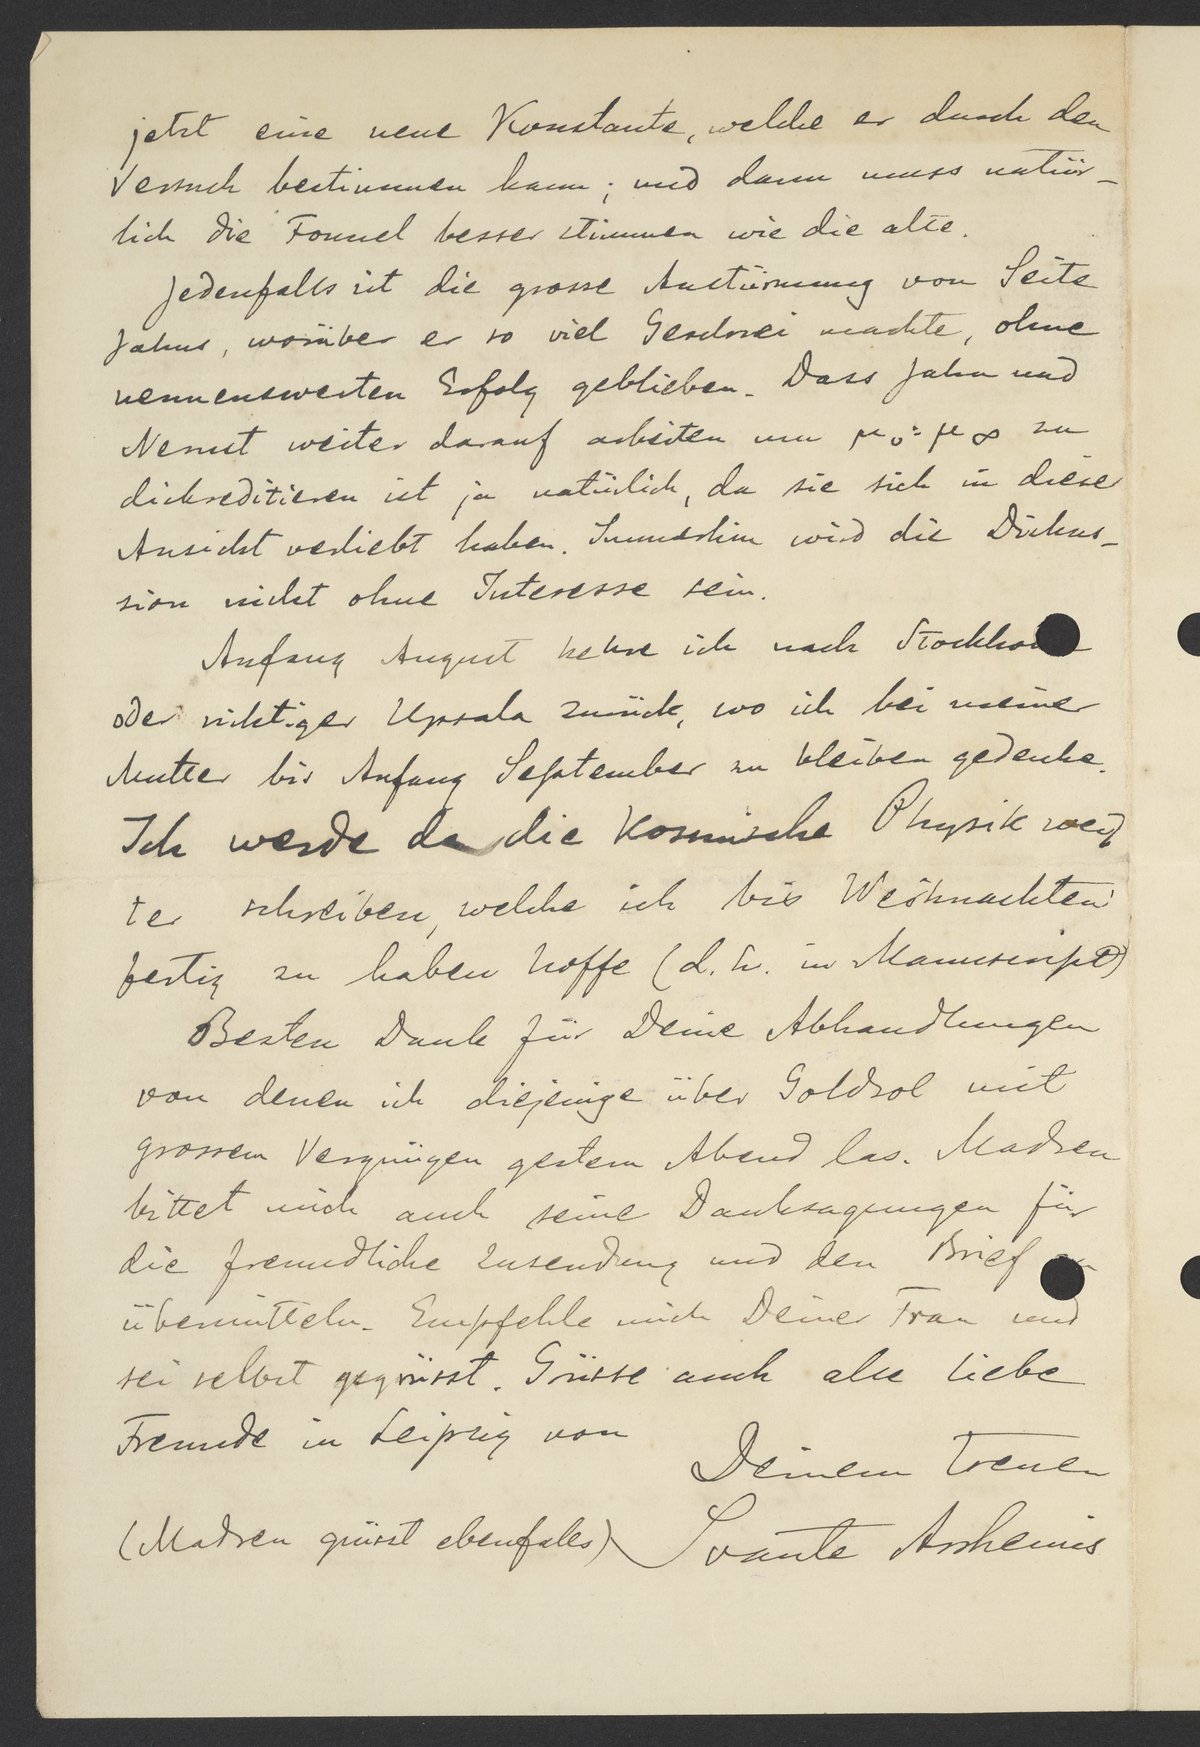 jetzt eine neue Konstante, welche er durch den
Versuch bestimmen kann; und dann muss natür-
lich die Formel besser stimmen wie die alte.
Jedenfalls ist die grosse Anstürmung von Seite
Jahns, worüber er so viel Geschrei machte, ohne
nennenswerten Erfolg geblieben. Dass Jahn und
Nernst weiter darauf arbeiten um μv : μ∞ zu
diskreditieren ist ja natürlich, da sie sich in diese
Ansicht verliebt haben. Immerhin wird die Diskus-
sion nicht ohne Interesse sein.
Anfang August kehre ich nach Stockholm
oder richtiger Upsala zurück, wo ich bei meiner
Mutter bis Anfang September zu bleiben gedenke.
Ich werde da die Kosmische Physik wei-
ter schreiben, welche ich bis Weihnachten
fertig zu haben hoffe (d. h. in Manuscript)
Besten Dank für Deine Abhandlungen
von denen ich diejenige über Goldsol mit
grossem Vergnügen gestern Abend las. Madsen
bittet mich auch seine Danksagungen für
die freundliche Zusendung und den Brief
übermitteln. Empfehle mich Deiner Frau und
sei selbst gegrüsst. Grüsse auch alle liebe
Freunde in Leipzig von
Deinem treuen
(Madsen grüsst ebenfalls) Svante Arrhenius